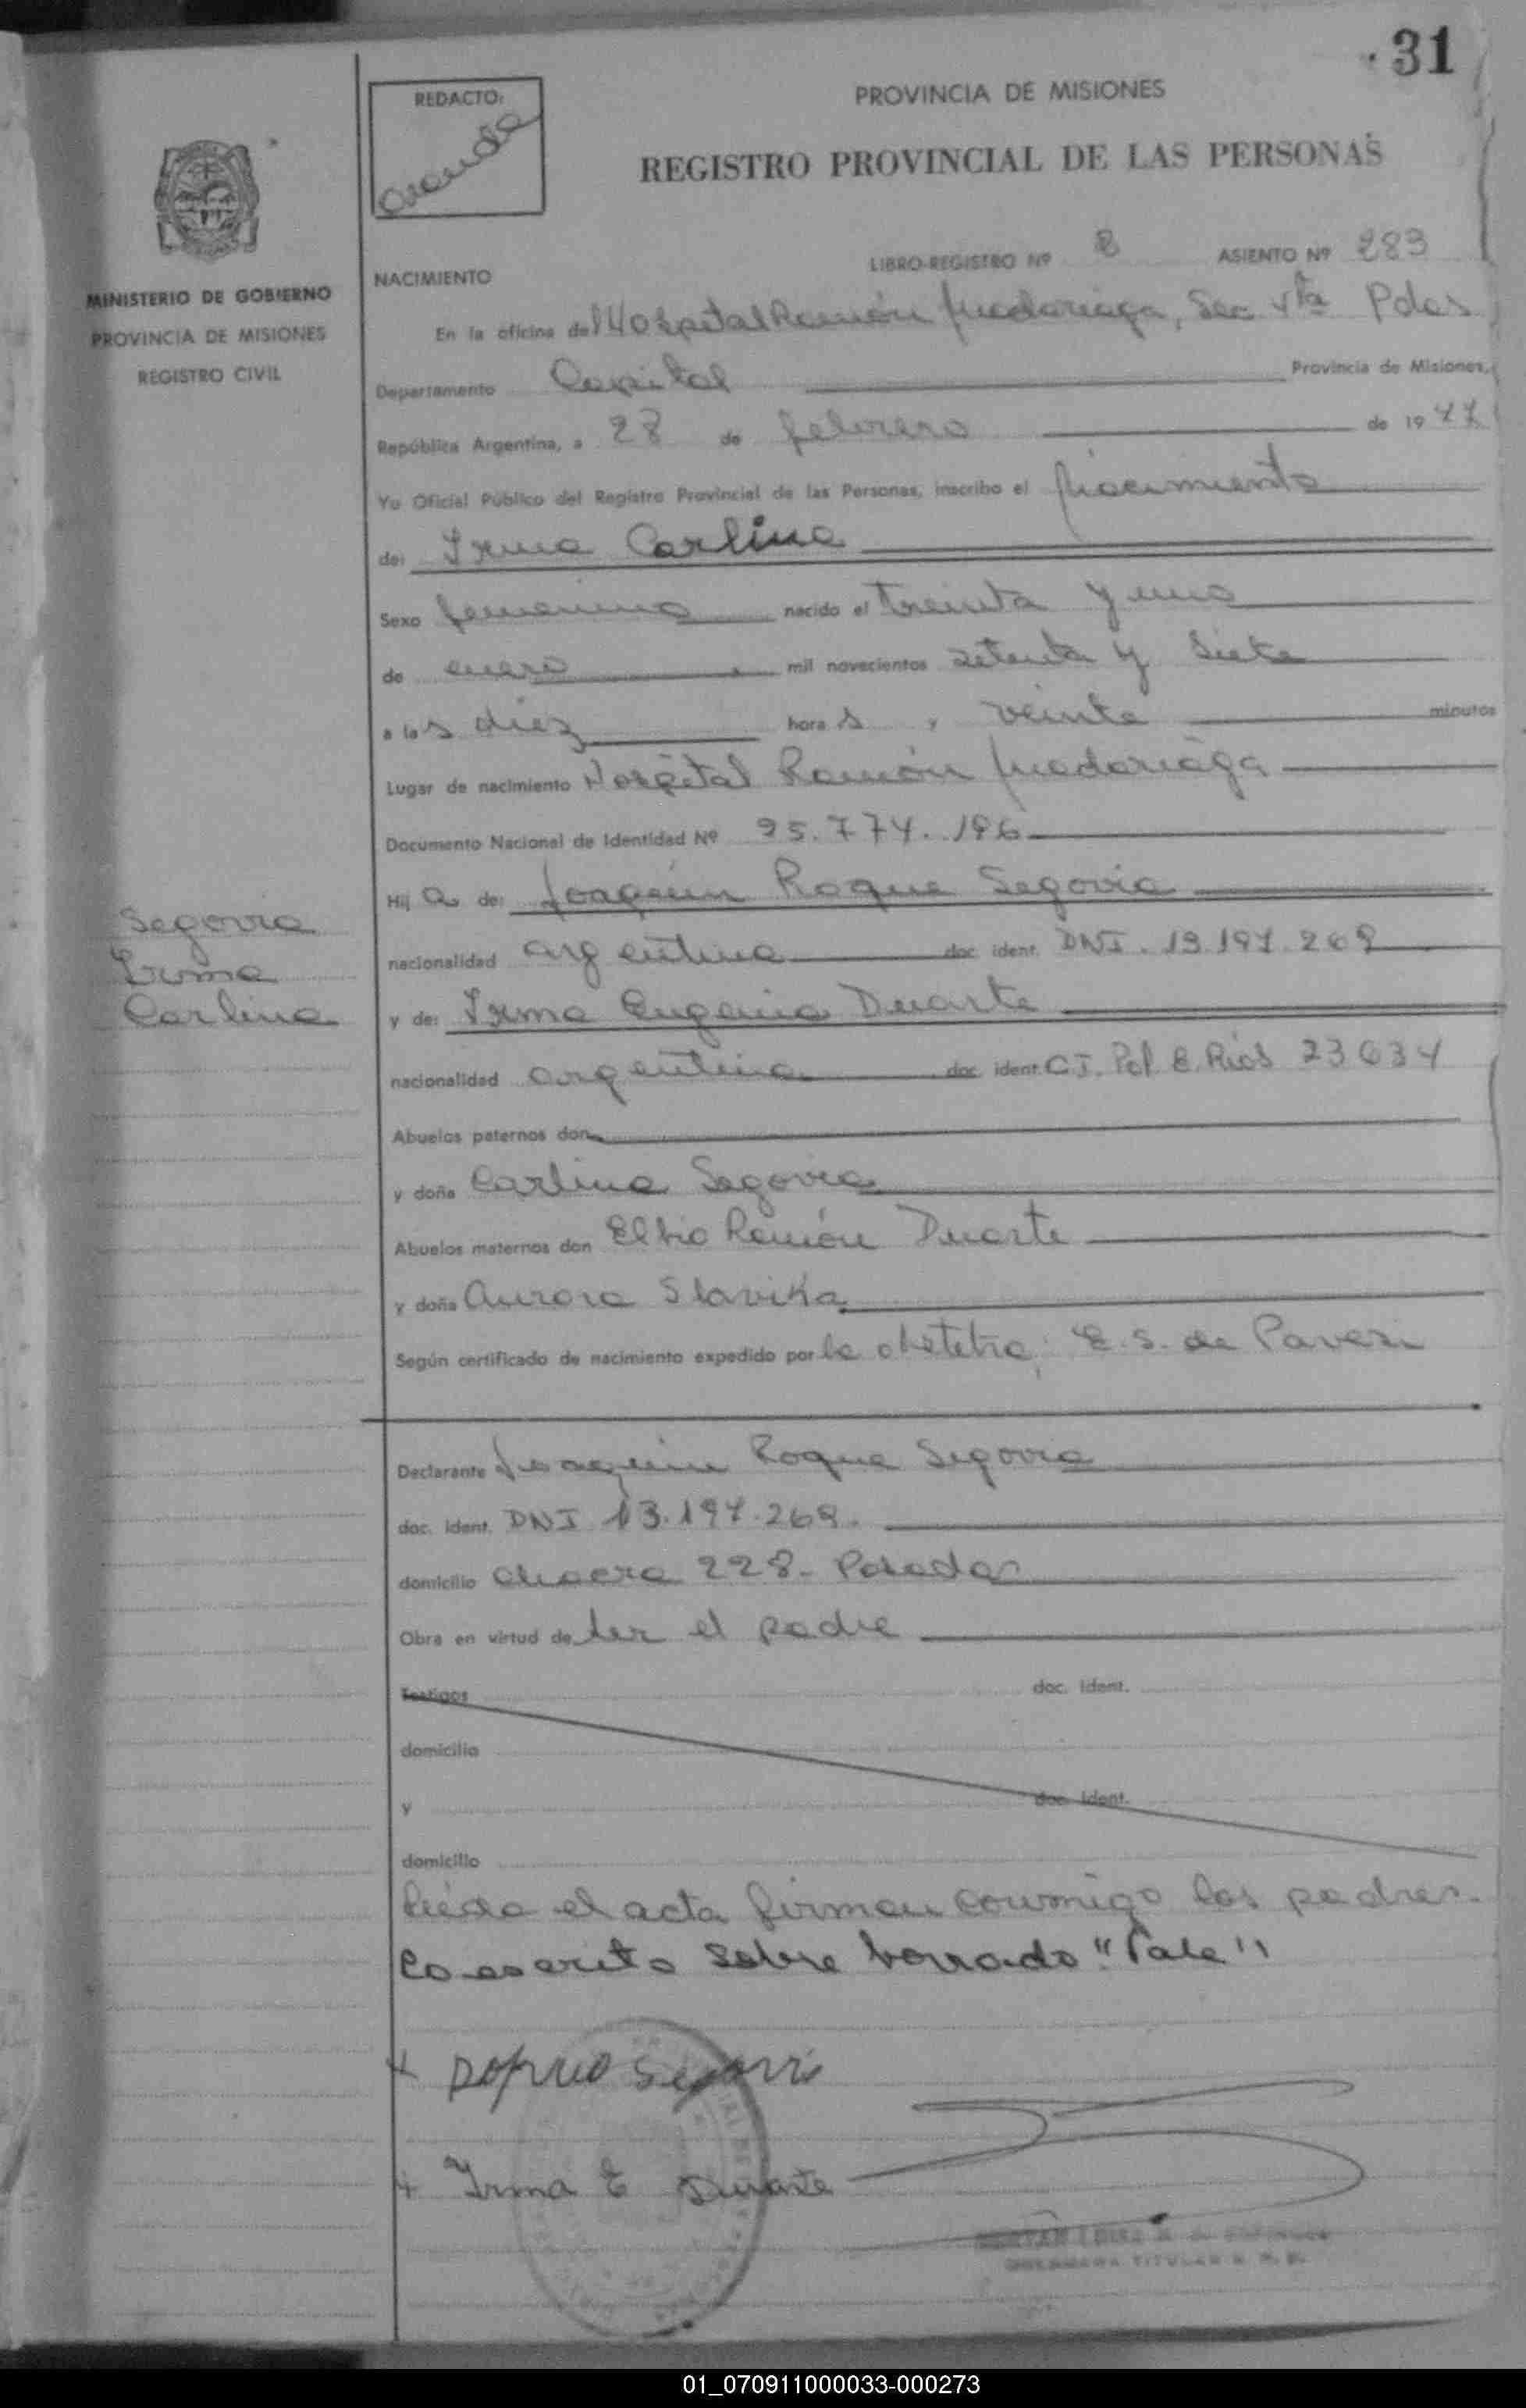 31
REDACTO:
Aranda
PROVINCIA DE MISIONES
REGISTRO PROVINCIAL DE LAS PERSONAS
MINISTERIO DE GOBIERNO
PROVINCIA DE MISIONES
REGISTRO CIVIL
LIBRO-REGISTRO Nº 2 ASIENTO Nº 283
NACIMIENTO
En la oficina del Hospital Ramón Madariaga, Sec Vta Pdas
Departamento Capital Provincia de Misiones,
República Argentina, a 28 de febrero de 1977
Yo Oficial Público del Registro Provincial de las Personas, inscribo el Nacimiento
de: Irma Carlina
Sexo femenino nacido el treinta y uno
de enero mil novecientos setenta y siete
a las diez horas y veinte minutos
Lugar de nacimiento Hospital Ramón Madariaga
Documento Nacional de Identidad Nº 25.774.196
Hija de: Joaquín Roque Segovia
Segovia
Irma
Carlina
nacionalidad argentina doc ident. DNI. 13.197.269
y de: Irma Eugenia Duarte
nacionalidad argentina doc ident. CI. Pol E. Ríos 23634
Abuelos paternos don
y doña Carlina Segovia
Abuelos maternos don Elbio Ramón Duarte
y doña Aurora Slavika
Según certificado de nacimiento expedido por la obstetra, E. S. de Paveri
Declarante Joaquín Roque Segovia
doc. ident. DNI 13.197.269.
domicilio Chacra 228- Posadas
Obra en virtud de ser el padre
Testigos doc. ident.
domicilio
y doc. ident.
domicilio
Leída el acta firman conmigo los padres.
Lo escrito sobre borrado "Vale"
Segovia
Irma E Duarte
TITULAR
01_070911000033-000273